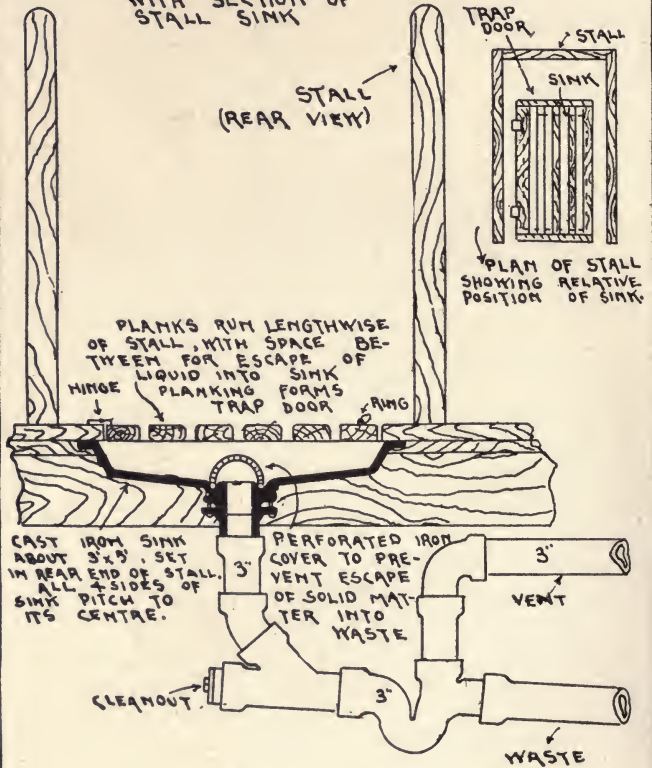 WITH SECTION OF
STALL SINK
STALL
(REAR VIEW)
TRAP
DOOR
STALL
SINK
PLAN OF STALL
SHOWING RELATIVE
POSITION OF SINK.
PLANKS RUN LENGTHWISE
OF STALL, WITH SPACE BE-
TWEEN FOR ESCAPE OF
LIQUID INTO SINK
PLANKING FORMS
TRAP DOOR
HINGE
RING
CAST IRON SINK
ABOUT 3'x5', SET
IN REAR END OF STALL.
ALL 4 SIDES OF
SINK PITCH TO
ITS CENTRE.
3"
PERFORATED IRON
COVER TO PRE-
VENT ESCAPE
OF SOLID MAT-
TER INTO
WASTE
3"
VENT
CLEANOUT
3"
WASTE